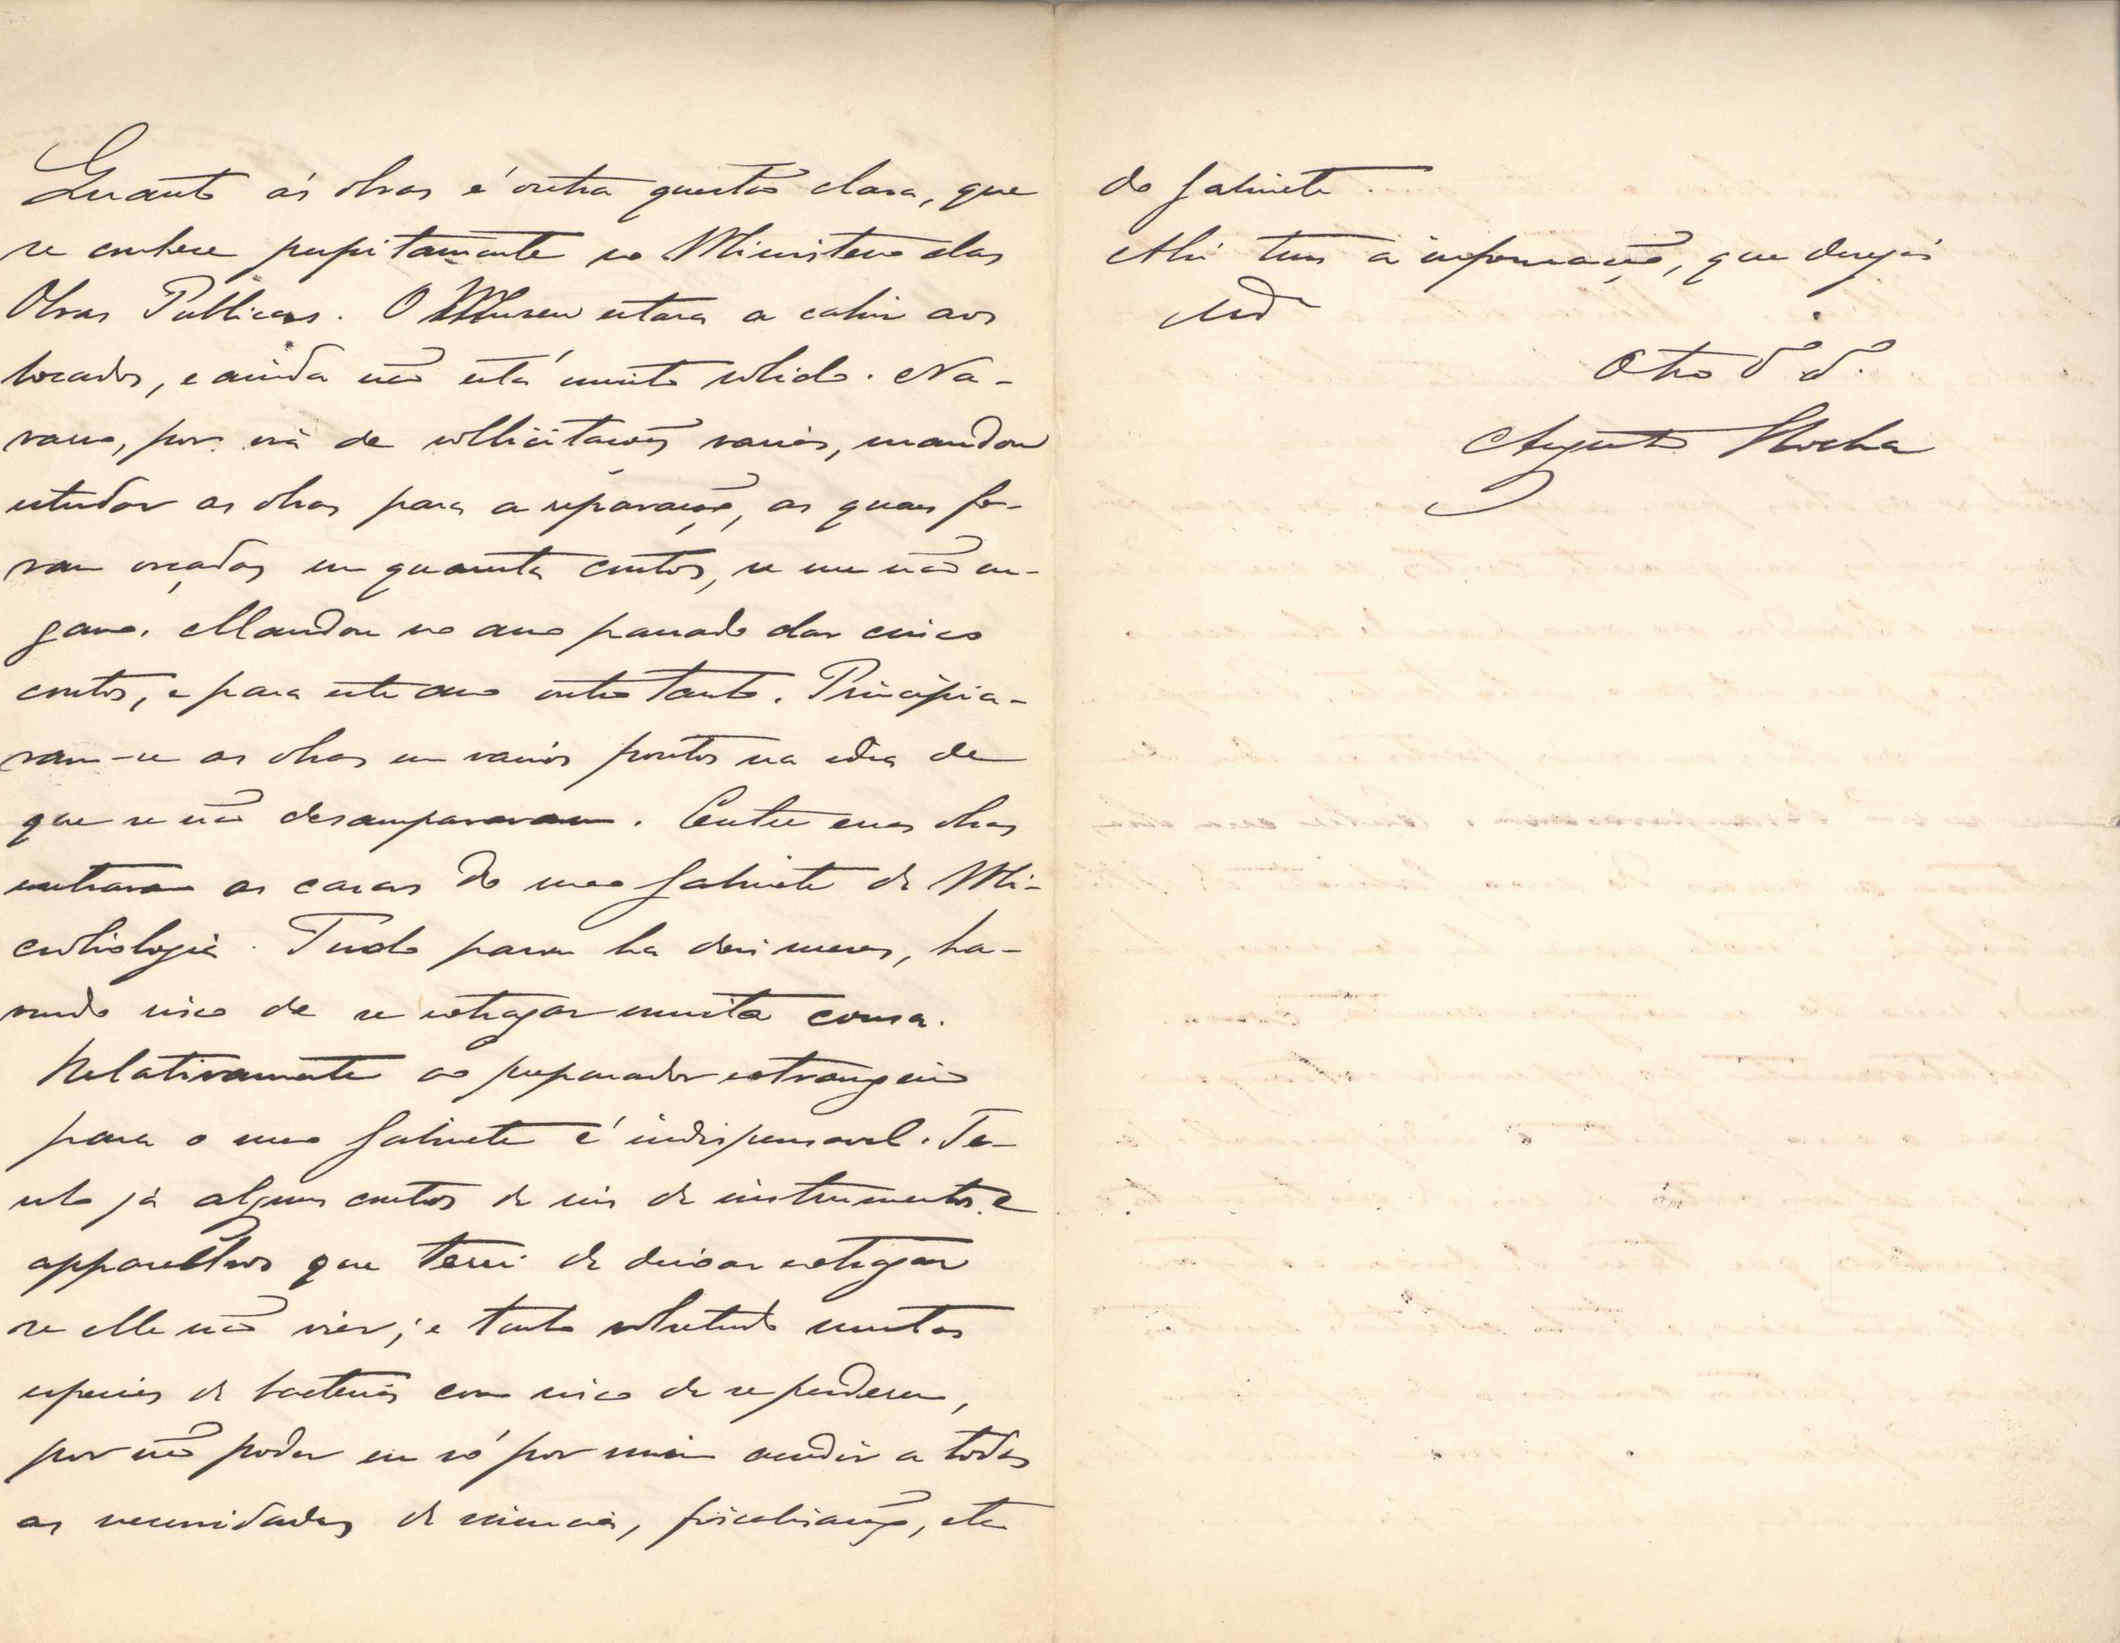 Quanto ás obras é outra questão clara, que
se conhece perfeitamente no Ministerio das
Obras Publicas. O Museu estava a cahir aos
bocados, e ainda não está muito solido. Na-
varro, por via de sollicitações varias, mandou
estudar as obras para a reparação, as quaes fo-
ram orçadas em quarenta contos, se me não en-
gano. Mandou no anno passado dar cinco
contos, e para este anno outro tanto. Principia-
ram-se as obras em varios pontos na idea de
que se não desamparavam. Entre essas obras
entravam as casas do meu Gabinete de Mi-
crobiologia. Tudo parou ha dois meses, ha-
vendo risco de se estragar muita cousa.
Relativamente ao preparador estrangeiro
para o meu Gabinete é indispensavel. Te-
nho já alguns contos de reis de instrumentos e
apparelhos que terei de deixar estragar
se elle não vier; e tenho sobretudo muitas
especies de bacterias com risco de se perderem,
por não poder eu só por mim acudir a todas
as necessidades de sciencia, fiscalisação, etc
do Gabinete.
Ahi tem a informação, que deseja
Augusto Rocha